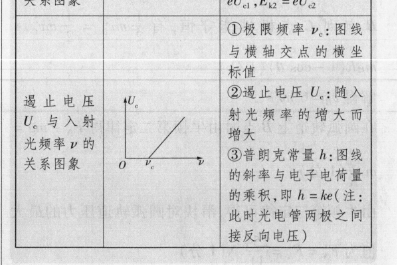 关系图象
eU_{c1},E_{k2}=eU_{c2}
遏止电压
U_c与入射
光频率ν的
关系图象
U_c
O
ν_c
ν
①极限频率ν_c:图线
与横轴交点的横坐
标值
②遏止电压U_c:随入
射光频率的增大而
增大
③普朗克常量h:图线
的斜率与电子电荷量
的乘积,即h=ke(注:
此时光电管两极之间
接反向电压)